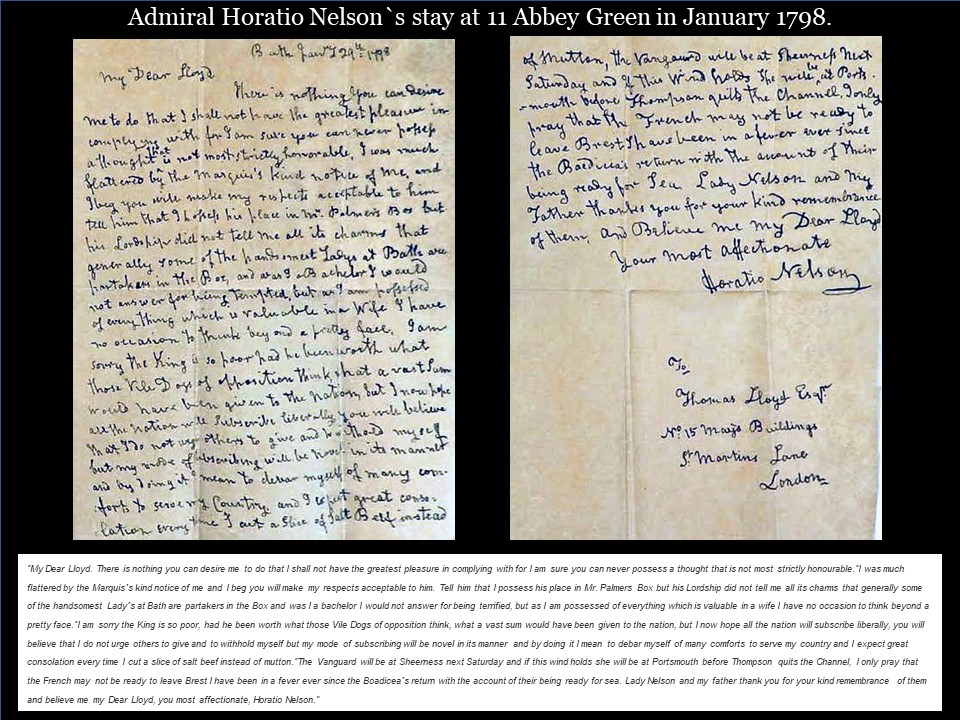 Admiral Horatio Nelson`s stay at 11 Abbey Green in January 1798.
Bath Janry 29th: 1798
My Dear Lloyd
There is nothing you can desire
me to do that I shall not have the greatest pleasure in
complying with for I am sure you can never possess
a thought that is not most strictly honorable, I was much
flattered by the Marquis's kind notice of me, and
I beg you will make my respects acceptable to him
tell him that I possess his place in Mr. Palmers Box but
his Lordship did not tell me all its charms that
generally some of the handsomest Ladys at Bath are
partakers in the Box, and was I a Bachelor I would
not answer for being tempted, but as I am possessed
of every thing which is valuable in a Wife I have
no occasion to think beyond a pretty face. I am
sorry the King is so poor had he been worth what
those Vile Dogs of opposition think, what a vast sum
would have been given to the Nation, but I now hope
all the Nation will subscribe liberally, you will believe
that I do not urge others to give and to withold myself
but my mode of subscribing will be novel in its manner
and by doing it I mean to debar myself of many com-
-forts to serve my Country and I expect great conso-
-lation every time I cut a slice of salt Beef instead
of Mutton, the Vanguard will be at Sheerness next
Saturday and if this wind holds she will be at Ports-
-mouth before Thompson quits the Channel, I only
pray that the French may not be ready to
leave Brest I have been in a fever ever since
the Boadicea's return with the account of their
being ready for Sea. Lady Nelson and my
Father thanks you for your kind remembrance
of them, and Believe me my Dear Lloyd
Your most affectionate
Horatio Nelson
To
Thomas Lloyd Esqr.
No. 15 Mays Buildings
St Martins Lane
London
"My Dear Lloyd. There is nothing you can desire me to do that I shall not have the greatest pleasure in complying with for I am sure you can never possess a thought that is not most strictly honourable."I was much
flattered by the Marquis's kind notice of me and I beg you will make my respects acceptable to him. Tell him that I possess his place in Mr. Palmers Box but his Lordship did not tell me all its charms that generally some
of the handsomest Lady's at Bath are partakers in the Box and was I a bachelor I would not answer for being terrified, but as I am possessed of everything which is valuable in a wife I have no occasion to think beyond a
pretty face."I am sorry the King is so poor, had he been worth what those Vile Dogs of opposition think, what a vast sum would have been given to the nation, but I now hope all the nation will subscribe liberally, you will
believe that I do not urge others to give and to withhold myself but my mode of subscribing will be novel in its manner and by doing it I mean to debar myself of many comforts to serve my country and I expect great
consolation every time I cut a slice of salt beef instead of mutton."The Vanguard will be at Sheerness next Saturday and if this wind holds she will be at Portsmouth before Thompson quits the Channel, I only pray that
the French may not be ready to leave Brest I have been in a fever ever since the Boadicea's return with the account of their being ready for sea. Lady Nelson and my father thank you for your kind remembrance of them
and believe me my Dear Lloyd, you most affectionate, Horatio Nelson."